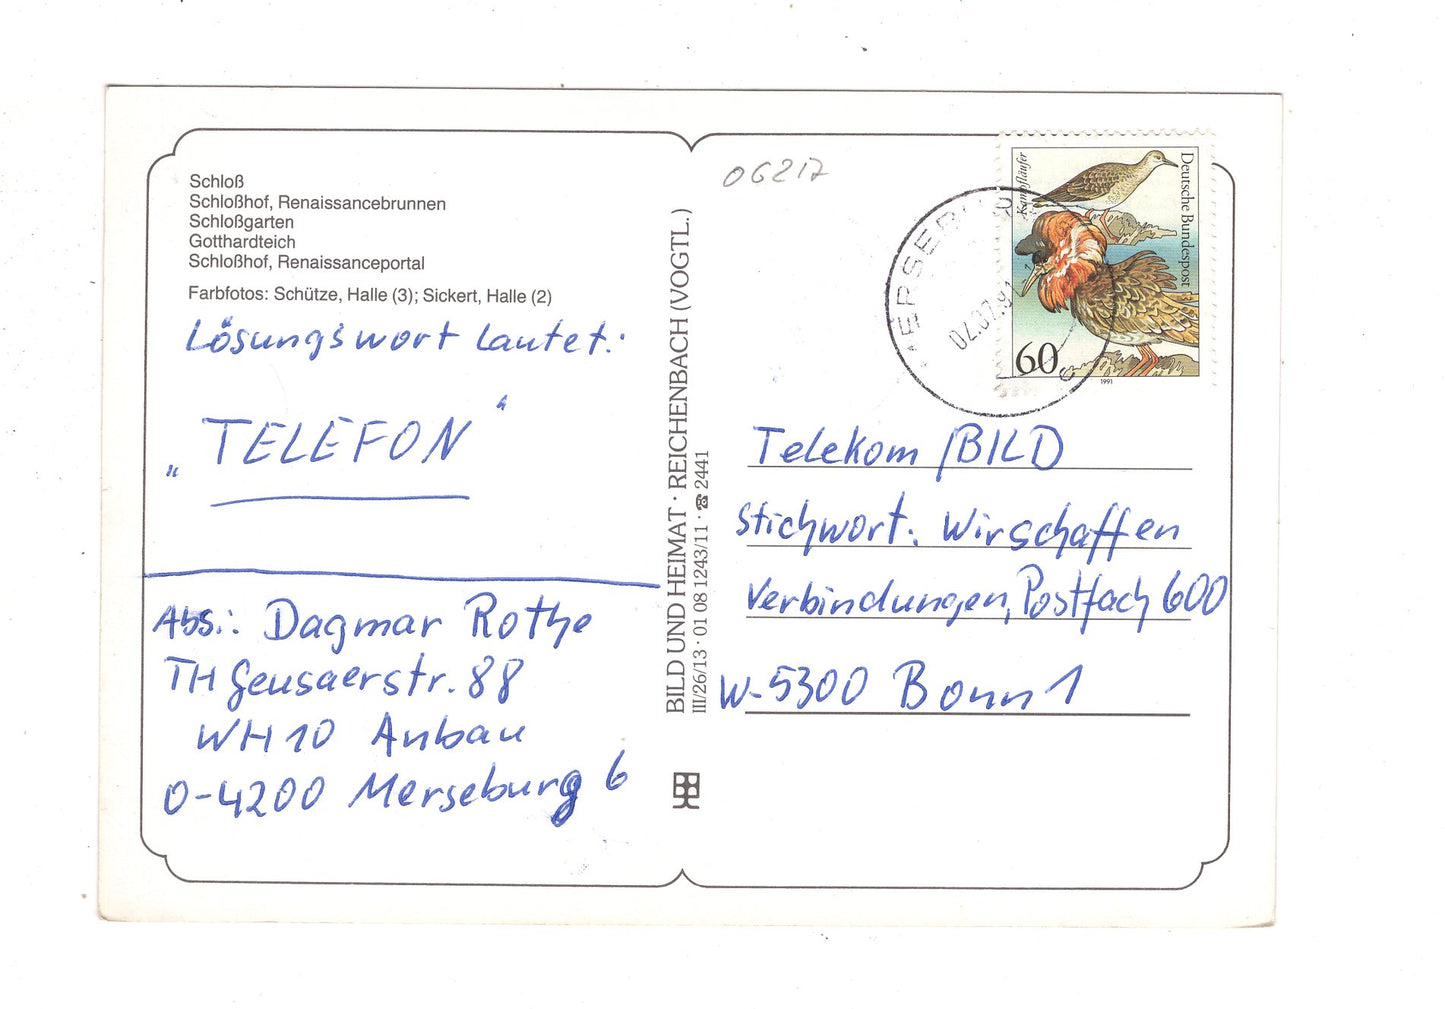 Schloß
Schloßhof, Renaissancebrunnen
Schloßgarten
Gotthardteich
Schloßhof, Renaissanceportal
Farbfotos: Schütze, Halle (3); Sickert, Halle (2)
Lösungswort lautet:
„TELEFON“
Abs.: Dagmar Rothe
TH Geusaerstr. 88
WH 10 Anbau
O-4200 Merseburg 6
BILD UND HEIMAT · REICHENBACH (VOGTL.)
III/26/13 · 01 08 1243/11 · ☎ 2441
06217
MERSEBURG
02.07.91
c
Kampfläufer
Deutsche Bundespost
60
1991
Telekom /BILD
Stichwort: Wirschaffen
Verbindungen, Postfach 600
W-5300 Bonn 1